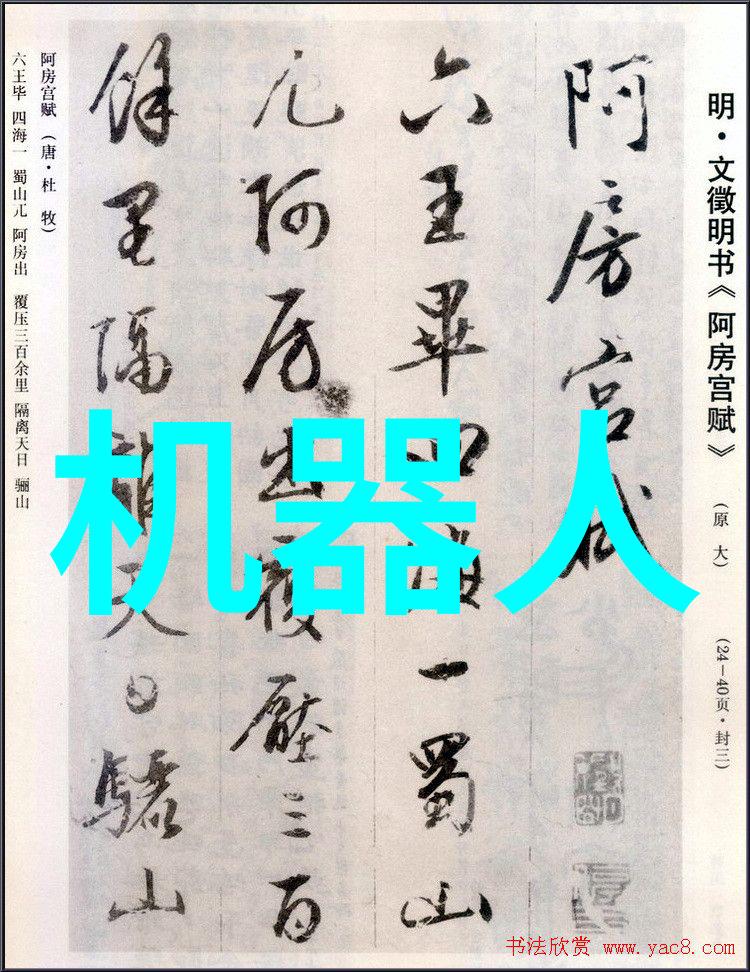 明·文徵明书《阿房宫赋》 (原大) (24—40页·封三)
阿房宫赋
六王畢四海一蜀山
兀阿房出覆壓三百
餘里隔離天日驪山
阿房宫赋 (唐·杜 牧)
六王毕 四海一 蜀山兀 阿房出 覆压三百余里 隔离天日 骊山
机器人
书法欣赏 www.yac8.com